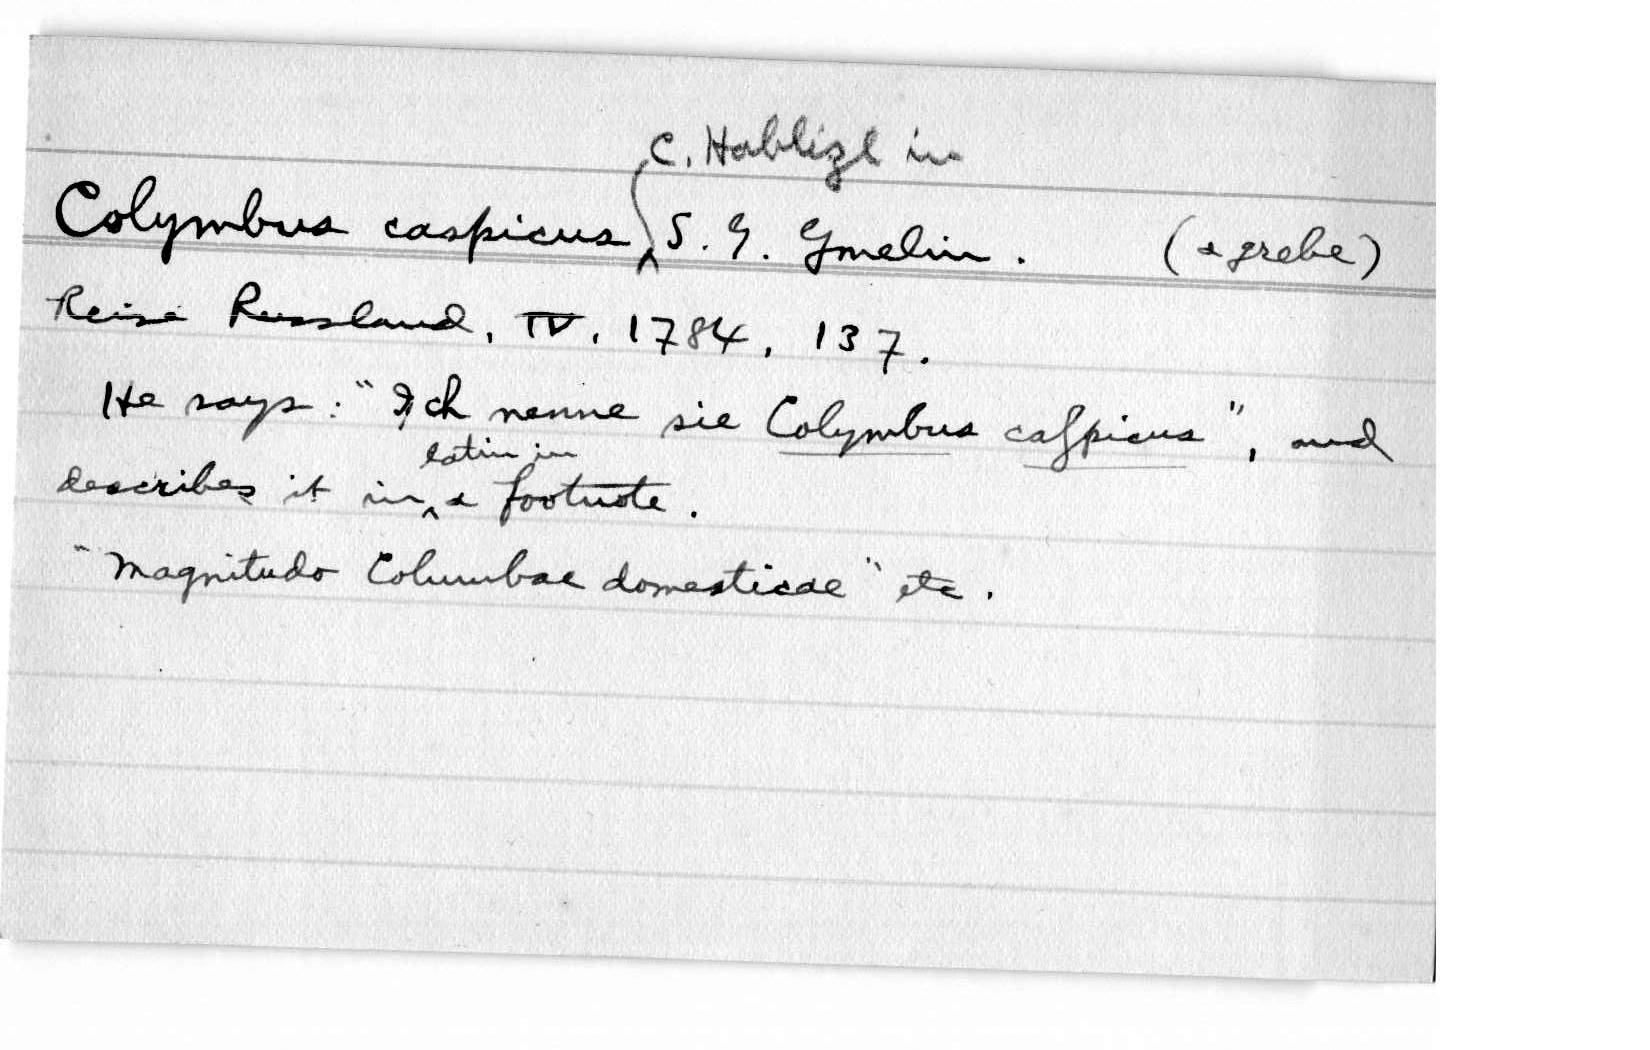 C. Hablizl in
Colymbus caspicus S. G. Gmelin. (a grebe)
Reise Russland, IV, 1784, 137.
He says: "Ich nenne sie Colymbus caſpicus", and
latin in
describes it in a footnote.
"Magnitudo Columbae domesticae" etc.